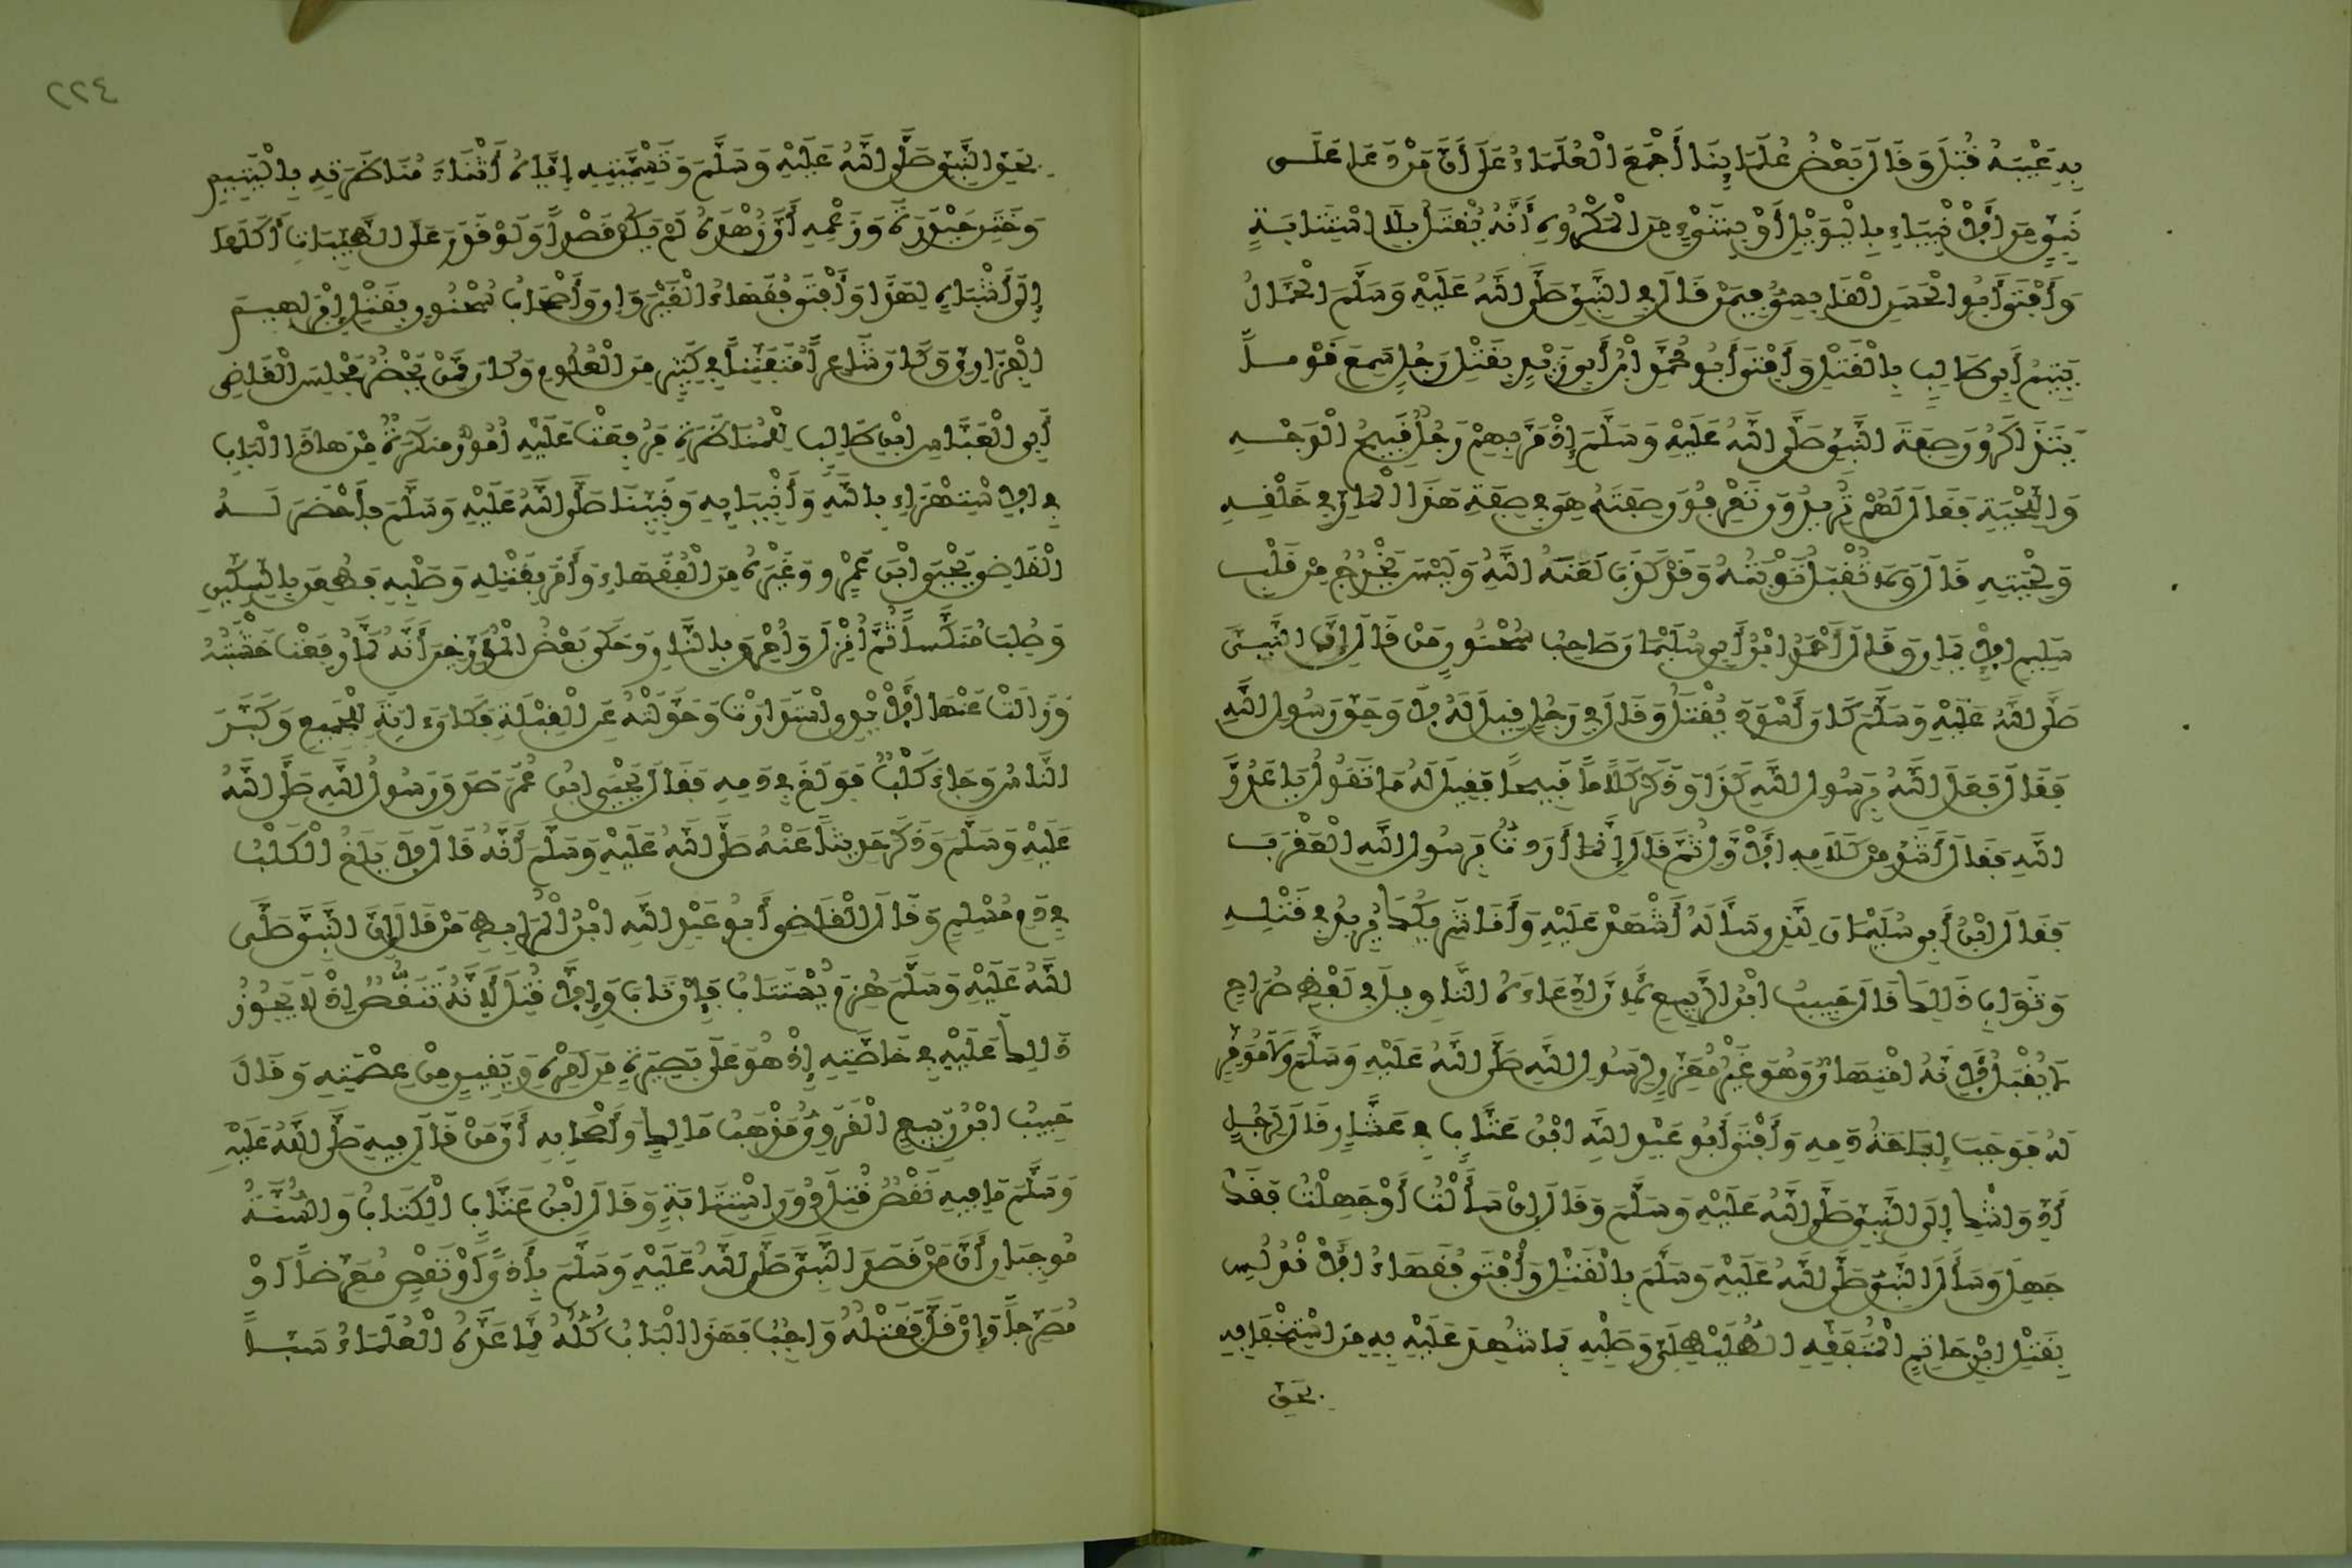 بِهِ عَيْبَهُ قُتِلَ وَقَالَ بَعْضُ عُلَمَائِنَا أَجْمَعَ الْعُلَمَاءُ عَلَى أَنَّ مَنْ دَعَا عَلَى
نَبِيٍّ مِنَ الْأَنْبِيَاءِ بِالْوَيْلِ أَوْ بِشَيْءٍ مِنَ الْمَكْرُوهِ أَنَّهُ يُقْتَلُ بِلَا اسْتِتَابَةٍ
وَأَفْتَى أَبُو الْحَسَنِ الْقَابِسِيُّ فِيمَنْ قَالَ فِي النَّبِيِّ صَلَّى اللَّهُ عَلَيْهِ وَسَلَّمَ الْحَمَّالُ
يَتِيمُ أَبِي طَالِبٍ بِالْقَتْلِ وَأَفْتَى أَبُو مُحَمَّدِ ابْنُ أَبِي زَيْدٍ بِقَتْلِ رَجُلٍ سَمِعَ قَوْماً
يَتَذَاكَرُونَ صِفَةَ النَّبِيِّ صَلَّى اللَّهُ عَلَيْهِ وَسَلَّمَ إِذْ مَرَّ بِهِمْ رَجُلٌ قَبِيحُ الْوَجْهِ
وَاللِّحْيَةِ فَقَالَ لَهُمْ تُرِيدُونَ تَعْرِفُونَ صِفَتَهُ هِيَ فِي صِفَةِ هَذَا الْمَارِّ فِي خَلْقِهِ
وَلِحْيَتِهِ قَالَ وَلَا تُقْبَلُ تَوْبَتُهُ وَقَدْ كَذَبَ لَعَنَهُ اللَّهُ وَلَيْسَ يَخْرُجُ مِنْ قَلْبِ
سَلِيمِ الْإِيمَانِ وَقَالَ أَحْمَدُ ابْنُ أَبِي سُلَيْمَانَ صَاحِبُ سُحْنُونٍ مَنْ قَالَ إِنَّ النَّبِيَّ
صَلَّى اللَّهُ عَلَيْهِ وَسَلَّمَ كَانَ أَسْوَدَ يُقْتَلُ وَقَالَ فِي رَجُلٍ قِيلَ لَهُ لَا وَحَقِّ رَسُولِ اللَّهِ
فَقَالَ فَعَلَ اللَّهُ بِرَسُولِ اللَّهِ كَذَا وَذَكَرَ كَلَاماً قَبِيحاً فَقِيلَ لَهُ مَا تَقُولُ يَا عَدُوَّ
اللَّهِ فَقَالَ أَشَدَّ مِنْ كَلَامِهِ الْأَوَّلِ ثُمَّ قَالَ إِنَّمَا أَرَدْتُ بِرَسُولِ اللَّهِ الْعَقْرَبَ
فَقَالَ ابْنُ أَبِي سُلَيْمَانَ لِلَّذِي سَأَلَهُ أَشْهَدْ عَلَيْهِ وَأَنَا شَرِيكُكَ يُرِيدُ فِي قَتْلِهِ
وَثَوَابِ ذَلِكَ قَالَ حَبِيبُ ابْنُ الرَّبِيعِ لِأَنَّ ادِّعَاءَهُ التَّأْوِيلَ فِي لَفْظٍ صُرَاحٍ
لَا يُقْبَلُ لِأَنَّهُ امْتِهَانٌ وَهُوَ غَيْرُ مُعَزِّرٍ لِرَسُولِ اللَّهِ صَلَّى اللَّهُ عَلَيْهِ وَسَلَّمَ وَلَا مُوَقِّرٍ
لَهُ فَوَجَبَ إِبَاحَةُ دَمِهِ وَأَفْتَى أَبُو عَبْدِ اللَّهِ ابْنُ عَتَّابٍ فِي عَشَّارٍ قَالَ لِرَجُلٍ
أَدِّ وَاشْكُ إِلَى النَّبِيِّ صَلَّى اللَّهُ عَلَيْهِ وَسَلَّمَ وَقَالَ إِنْ سَأَلْتُ أَوْ جَهِلْتُ فَقَدْ
جَهِلَ وَسَأَلَ النَّبِيُّ صَلَّى اللَّهُ عَلَيْهِ وَسَلَّمَ بِالْقَتْلِ وَأَفْتَى فُقَهَاءُ الْأَنْدُلُسِ
بِقَتْلِ ابْنِ حَاتِمٍ الْمُتَفَقِّهِ الطُّلَيْطِلِيِّ وَصَلْبِهِ بِمَا شُهِدَ عَلَيْهِ بِهِ مِنَ اسْتِخْفَافِهِ
بِحَقِّ
٢٢٤
بِحَقِّ النَّبِيِّ صَلَّى اللَّهُ عَلَيْهِ وَسَلَّمَ وَتَسْمِيَتِهِ إِيَّاهُ أَثْنَاءَ مُنَاظَرَتِهِ بِالْيَتِيمِ
وَخَتَنِ حَيْدَرَةَ وَزَعْمِهِ أَنَّ زُهْدَهُ لَمْ يَكُنْ قَصْداً وَلَوْ قَدَرَ عَلَى الطَّيِّبَاتِ أَكَلَهَا
إِلَى أَشْبَاهٍ لِهَذَا وَأَفْتَى فُقَهَاءُ الْقَيْرَوَانِ وَأَصْحَابُ سُحْنُونٍ بِقَتْلِ إِبْرَاهِيمَ
الْفَزَارِيِّ وَكَانَ شَاعِراً مُتَفَنِّناً فِي كَثِيرٍ مِنَ الْعُلُومِ وَكَانَ مِمَّنْ يَحْضُرُ مَجْلِسَ الْقَاضِي
أَبِي الْعَبَّاسِ ابْنِ طَالِبٍ لِلْمُنَاظَرَةِ فَرُفِعَتْ عَلَيْهِ أُمُورٌ مُنكَرَةٌ مِنْ هَاذَا الْبَابِ
فِي الِاسْتِهْزَاءِ بِاللَّهِ وَأَنْبِيَائِهِ وَنَبِيِّنَا صَلَّى اللَّهُ عَلَيْهِ وَسَلَّمَ فَأَحْضَرَ لَهُ
الْقَاضِي يَحْيَى ابْنَ عُمَرَ وَغَيْرَهُ مِنَ الْفُقَهَاءِ وَأَمَرَ بِقَتْلِهِ وَصَلْبِهِ فَطُعِنَ بِالسِّكِّينِ
وَصُلِبَ مُنَكَّساً ثُمَّ أُنْزِلَ وَأُحْرِقَ بِالنَّارِ وَحَكَى بَعْضُ الْمُؤَرِّخِينَ أَنَّهُ لَمَّا رُفِعَتْ خَشَبَتُهُ
وَزَالَتْ عَنْهَا الْأَيْدِي اسْتَدَارَتْ وَحَوَّلَتْهُ عَنِ الْقِبْلَةِ فَكَانَ ءَايَةً لِلْجَمِيعِ وَكَبَّرَ
النَّاسُ وَجَاءَ كَلْبٌ فَوَلَغَ فِي دَمِهِ فَقَالَ يَحْيَى ابْنُ عُمَرَ صَدَقَ رَسُولُ اللَّهِ صَلَّى اللَّهُ
عَلَيْهِ وَسَلَّمَ وَذَكَرَ حَدِيثاً عَنْهُ صَلَّى اللَّهُ عَلَيْهِ وَسَلَّمَ أَنَّهُ قَالَ لَا يَلَغُ الْكَلْبُ
فِي دَمِ مُسْلِمٍ وَقَالَ الْقَاضِي أَبُو عَبْدِ اللَّهِ ابْنُ الْمُرَابِطِ مَنْ قَالَ إِنَّ النَّبِيَّ صَلَّى
اللَّهُ عَلَيْهِ وَسَلَّمَ هُزِمَ يُسْتَتَابُ فَإِنْ تَابَ وَإِلَّا قُتِلَ لِأَنَّهُ تَنَقُّصٌ إِذْ لَا يَجُوزُ
ذَلِكَ عَلَيْهِ فِي خَاصَّتِهِ إِذْ هُوَ عَلَى بَصِيرَةٍ مِنَ امْرِهِ وَيَقِينٍ مِنْ عِصْمَتِهِ وَقَالَ
حَبِيبُ ابْنُ رَبِيعٍ الْقَرَوِيُّ مَذْهَبُ مَالِكٍ وَأَصْحَابِهِ أَنَّ مَنْ قَالَ فِيهِ صَلَّى اللَّهُ عَلَيْهِ
وَسَلَّمَ مَا فِيهِ نَقْصٌ قُتِلَ دُونَ اسْتِتَابَةٍ وَقَالَ ابْنُ عَتَّابٍ الْكِتَابُ وَالسُّنَّةُ
مُوجِبَانِ أَنَّ مَنْ قَصَدَ النَّبِيَّ صَلَّى اللَّهُ عَلَيْهِ وَسَلَّمَ بِأَذًى أَوْ نَقْصٍ مُعَرِّضاً أَوْ
مُصَرِّحاً وَإِنْ قَلَّ فَقَتْلُهُ وَاجِبٌ فَهَذَا الْبَابُ كُلُّهُ مِمَّا عَدَّهُ الْعُلَمَاءُ سَبّاً